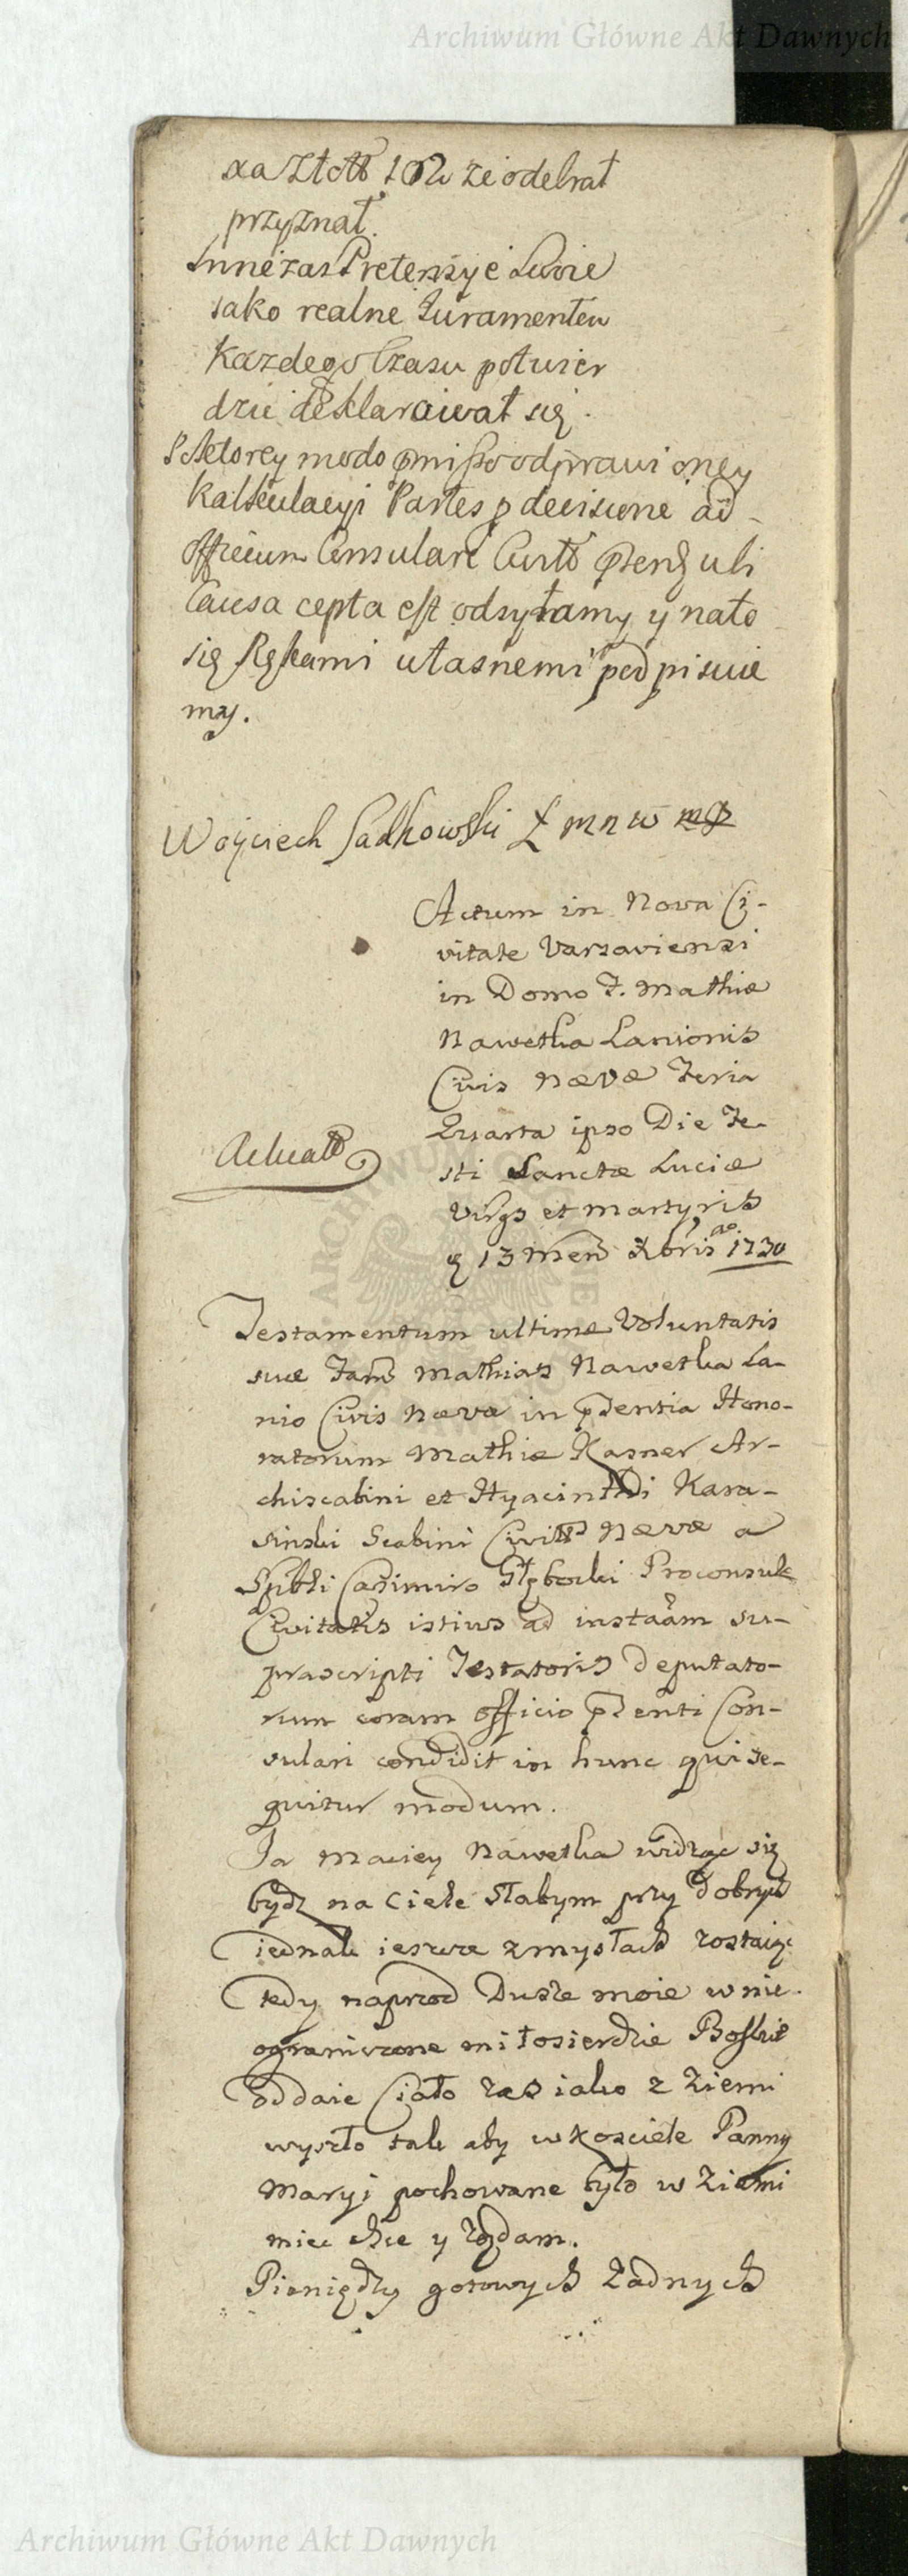 Archiwum Główne Akt Dawnych
xa Złott 102 ze odebrał
przyznał.
Inne zas Pretensye Luvie
iako realne Iuramentem
Kazdego Czasu potwier
dzic deklarawał się.
Ktorey modo odprawioney
Kalkulacyi Partes p decisione ad
officium Consulare Cuius ubi
Causa cepta est odsyłamy y nato
się Rękami własnemi podpisuie
my.
Wojciech Sadkowski Ł m n w mp
Actum in Nova Ci-
vitate Varsaviensi
in Domo F. Mathiæ
Nawetka Lanionis
Civis Nævæ Feria
Quarta ipso Die Fe-
sti Sanctæ Luciæ
Virgs et Martyris
q 13 Mens Xbris ao. 1730
Actuatt
Testamentum ultimæ Voluntatis
suæ Fams Mathias Nawetka La-
nio Civis Nævæ in pdentia Hono-
ratorum Mathiæ Kasner Ar-
chiscabini et Hyacinthi Kara-
sinski Scabini Civitts Nævæ a
Spbli Casimiro Głębocki Proconsule
Civitatis istius ad instaām su-
prascripti Testatoris deputato-
rum coram officio pdenti Con-
sulari condidit in hunc qui se-
quitur modum.
Ja Maciey Nawetka widząc się
bydz na Ciele słabym przy dobrych
iednak ieszcze zmysłach zostaiąc
tedy naprzod Dusze moie w nie-
ograniczone miłosierdzie Boskie
oddaie Ciało zas iako z ziemi
wyszło tak aby w Kosciele Panny
Maryi pochowane było w ziemi
miec chce y ządam.
Pieniędzy gotowych zadnych
Archiwum Główne Akt Dawnych